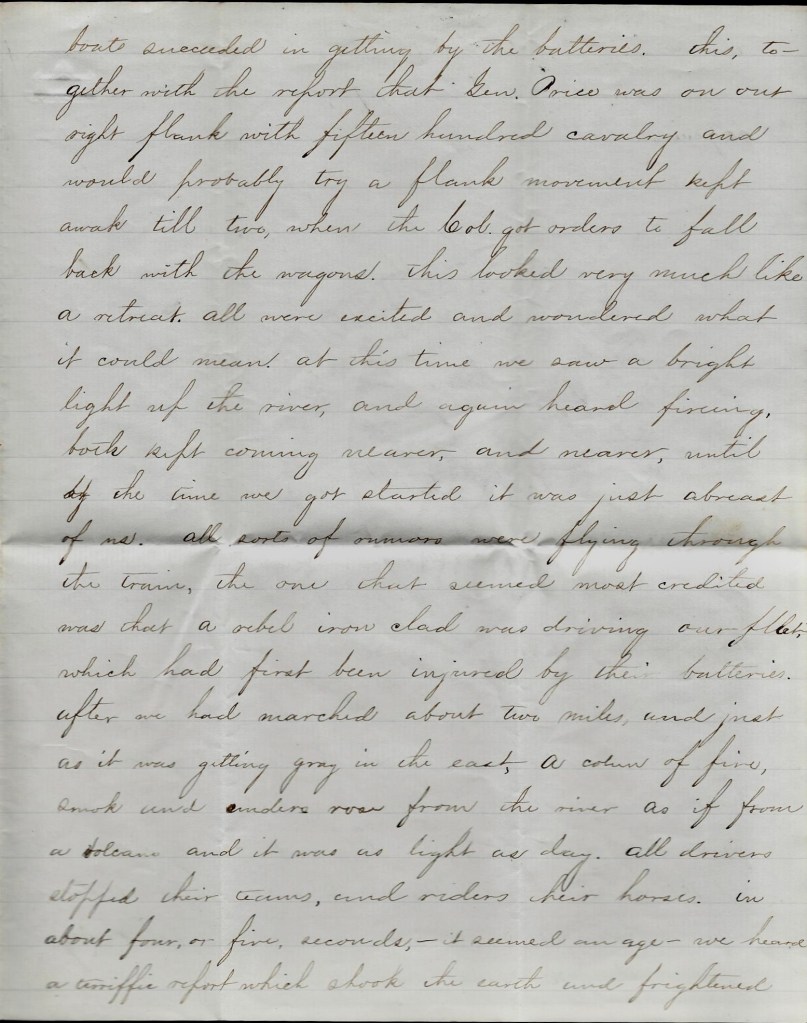 boats succeeded in getting by the batteries. this, to-
gether with the report that Gen. Price was on our
right flank with fifteen hundred cavalry and
would probably try a flank movement kept
awak till two, when the Col. got orders to fall
back with the wagons. this looked very much like
a retreat. all were excited and wondered what
it could mean. at this time we saw a bright
light up the river, and again heard fireing,
both kept coming nearer, and nearer, until
by the time we got started it was just abreast
of us. all sorts of rumors were flying through
the train, the one that seemed most credited
was that a rebel iron clad was driving our fleet,
which had first been injured by their batteries.
after we had marched about two miles, and just
as it was getting gray in the east, a colum of fire,
smok and cinders rose from the river as if from
a volcano and it was as light as day. all drivers
stopped their teams, and riders their horses. in
about four, or five, seconds, - it seemed an age - we heard
a terriffic report which shook the earth and frightened